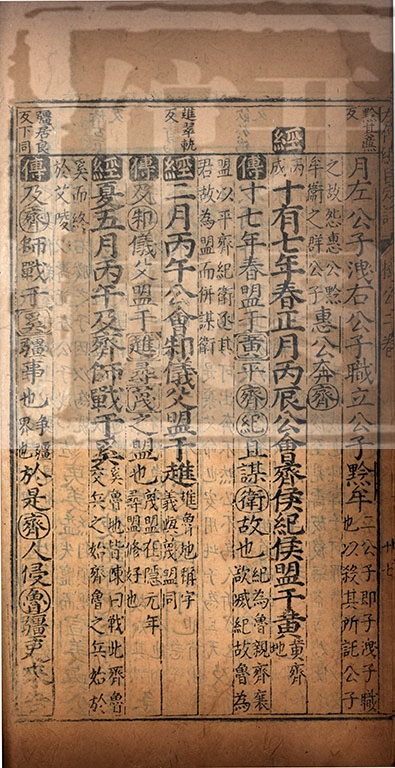 月左公子洩右公子職立公子黔牟二公子即子洩子職也以殺其所託公子
之故怨惠公黔牟衛之群公子惠公奔齊
經丙戌十有七年春正月丙辰公會齊侯紀侯盟于黃黃齊地
傳十七年春盟于黃平齊紀且謀衛故也紀為魯親齊襄欲滅紀故魯為
盟以平齊紀衛逐其君故為盟而併謀衛
趡翠軌反
經二月丙午公會邾儀父盟于趡趡魯地稱字義與蔑盟同
傳及邾儀父盟于趡尋蔑之盟也蔑盟在隱元年尋盟修好也
經夏五月丙午及齊師戰于奚奚魯地皆陳曰戰此齊魯交兵之始齊魯之兵始於
奚而終於艾陵
疆居良反下同
傳及齊師戰于奚疆事也爭疆界也於是齊人侵魯疆吏來